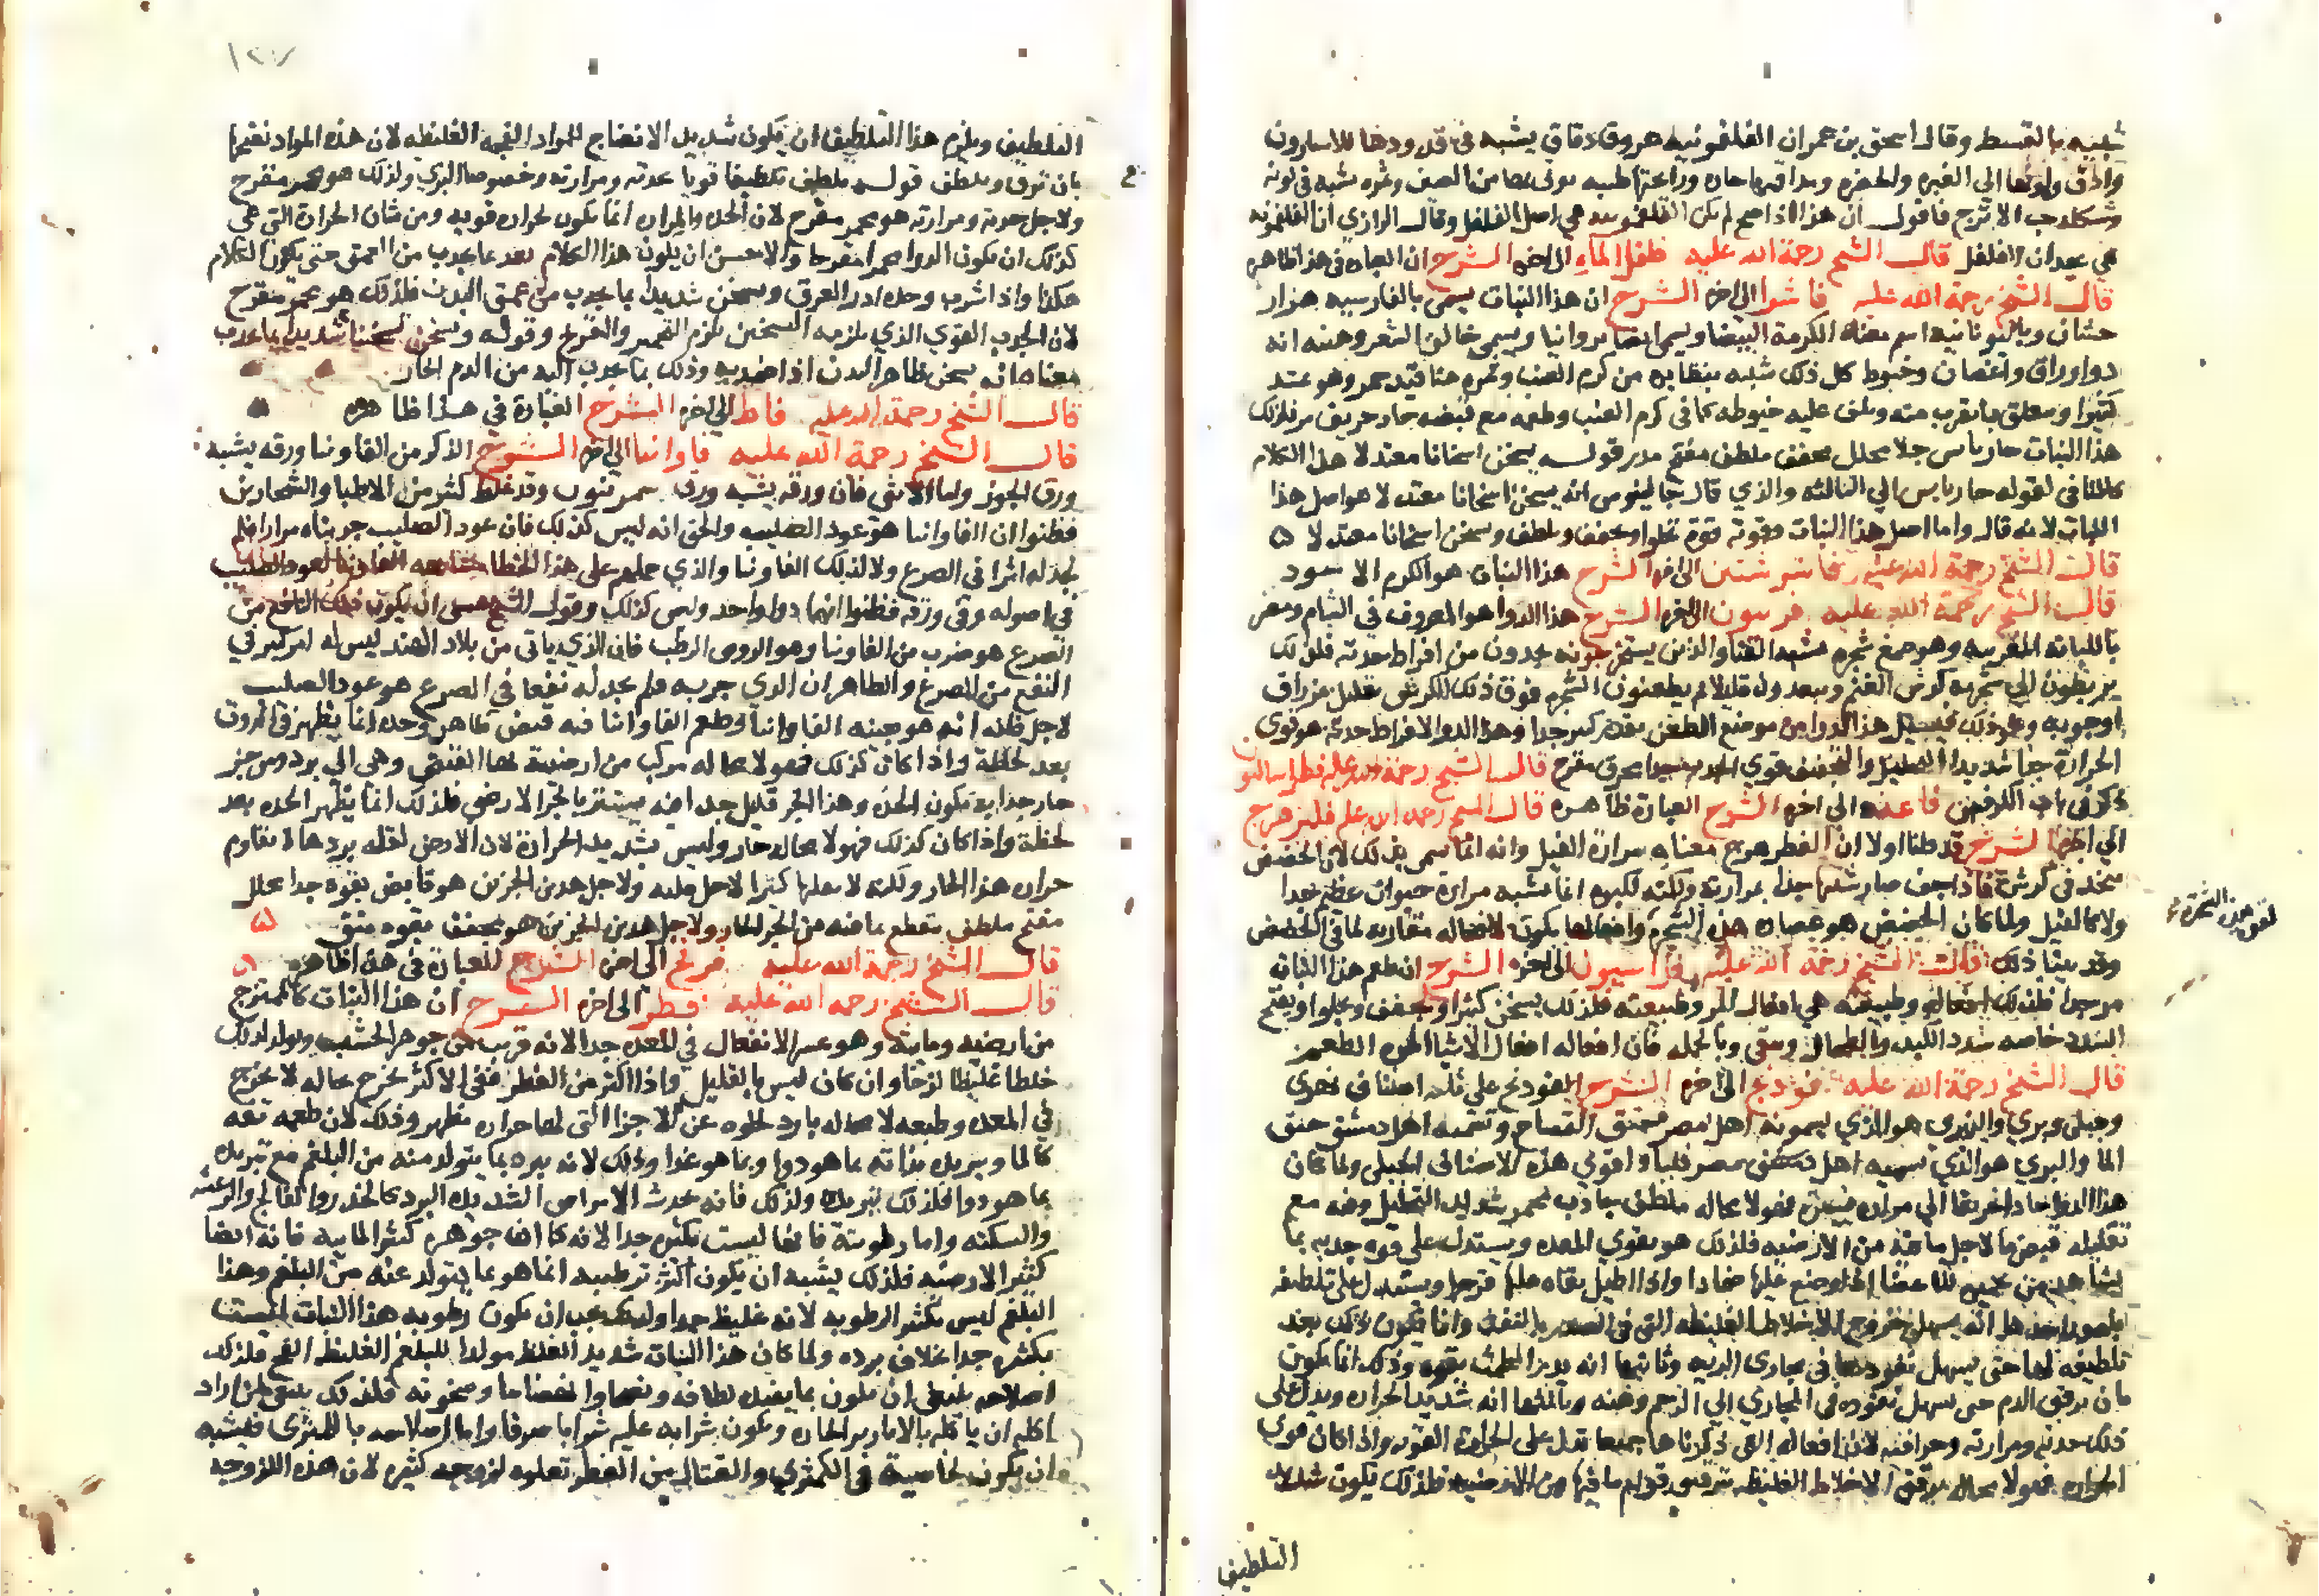 شبيه بالقسط وقال اسحق بن عمران الفلفونيه عروق دقاق يشبه في قدودها للاسارون
وادق ولونها الى الغبره والحضره ومذاقتها حاره ورايحتها طيبه يوتى بها من الصين وثمره يشبه في لونه
وشكله حب الاترج فاقول ان هذا اذا صح لم يكن الفلفمويه هي اصل الفلفل وقال الرازي ان الفلفمويه
هي عيدان الفلفل قال الشيخ رحمة الله عليه فلفل الماء الى اخره الشرح ان العباره في هذا ظاهره
قال الشيخ رحمة الله عليه فاشرا الى اخره الشرح ان هذا النبات يسمى بالفارسيه هزار
حشان وباليونانيه اسم معناه الكرمة البيضا ويسمى ايضا بروانيا ويسمى خالق الشعر وهيئه انه
ذو اوراق واغصان وخيوط كل ذلك شبيه بنظايره من كرم العنب وثمره عناقيد حمر وهو يمتد
كثيرا ويتعلق بما يقرب منه ويلتف عليه خيوطه كما في كرم العنب وطعمه مع قبضه حار حريف مر فلذلك
هذا النبات حار يابس جلا محلل مجفف ملطف مفتح مدر قوله يسخن اسخانا معتدلا هذا الكلام
كالمنافي لقوله حار يابس الى الثالثه والذي قال جالينوس انه يسخن اسخانا معتدلا هو اصل هذا
النبات لانه قال واما اصل هذا النبات فقوته قوة تجلوا وتجفف وتلطف وتسخن اسخانا معتدلا ۵
قال الشيخ رحمة الله عليه فاشرشتين الى اخره الشرح هذا النبات هو الكرم الاسود
قال الشيخ رحمة الله عليه فربيون الى اخره الشرح هذا الدوا هو المعروف في الشام ومصر
باللبانه المغربيه وهو صمغ شجره مشبه القثا والذين يستخرجونه يحذرون من افراط حدته فلذلك
يربطون الى شجره كرش الغنم ويبعدون قليلا ثم يطعنون الشجره فوق ذلك الكرش بقليل بمزراق
او حربه ونحو ذلك فيسيل هذا الدوا من موضع الطعن بقدر كبير جدا وهذا الدوا لافراط حدته هو قوي
الحرارة جدا شديد التحليل والتجفيف قوي الجذب محرق مقرح قال الشيخ رحمة الله عليه فطراساليون
ذكر في باب الكرفس فاغيه الى اخره الشرح العبارة ظاهره قال الشيخ رحمه الله عليه فيلزهرج
الى اخره الشرح قد قلنا اولا ان الفيلزهرج معناه مرارة الفيل وانه انما سمي بذلك لان الحضض
يتخذ في كرش فاذا جف صار شبيها جدا بمرارة ولكنه لكبره انما يشبه مرارة حيوان عظيم جدا
ولا كالفيل ولما كان الحضض هو عصاره هذه الشجره وافعالها يكون لا محاله مقاربه لما في الحضض
وقد بينا ذلك قال الشيخ رحمة الله عليه فراسيون الى اخره الشرح ان طعم هذا النبات
مر جدا فلذلك افعاله وطبيعته هي افعال المر وطبيعته فلذلك يسخن كثيرا ويجفف ويجلوا ويفتح
السدد خاصه سدد الكبد والطحال وينقي وبالجمله فان افعاله افعال الاشيا المره الطعم
قال الشيخ رحمة الله عليه فوذنج الى اخره الشرح الفوذنج على ثلثه اصناف نهري
وجبلي وبري والنهري هو الذي يسمونه اهل مصر حبق التمساح وتسميه اهل دمشق حبق
الما والبري هو الذي تسميه اهل دمشق ومصر فليا واقوى هذه الاصناف الجبلي ولما كان
هذا الدوا حادا حريفا الى مراره يسيره فهو لا محاله ملطف جاذب محمر شديد التحليل وفيه مع
تحليله قبض ما لاجل ما فيه من الارضيه فلذلك هو يقوي المعده ويستدل على قوه جذبه بما
يشاهد من تحميره للاعضا اذا وضع عليها ضمادا واذا اطيل بقاه عليها قرحها ويستدل على تلطيفه
بامور احدها انه يسهل خروج الاخلاط الغليظه التي في الصدر بالنفث وانما يكون ذلك بعد
تلطيفه لها حتى يسهل نفوذها في مجاري الريه وثانيها انه يدر الطمث بقوه وذلك انما يكون
بان يرقق الدم حتى يسهل نفوذه في المجاري الى الرحم ومنه وثالثها انه شديد الحراره ويدل على
ذلك حدته ومرارته وحرافته لان افعاله التي ذكرناها جميعا تدل على الحرارة القويه واذا كان قوي
الحراره فهو لا محاله يرقق الاخلاط الغليظه ترقيق قوام ما فيها من الارضيه فلذلك يكون شديد
التلطيف
لقي هذه الشجرة
١٢٧
التلطيف ويلزم هذا التلطيف ان يكون شديد الانضاج للمواد الفجه الغليظه لان هذه المواد نضجها
بان ترق وتلطف قوله ملطف تلطيفا قويا حدته ومرارته وخصوصا البري ولذلك هو محمر مقرح
ولاجل حدته ومرارته هو محمر مقرح لان الحده والمراره انما يكون لحراره قويه ومن شان الحرارة التي هي
كذلك ان يكون الدوا محمرا مقرحا والاحسن ان يكون هذا الكلام بعد ما يجذب من العمق حتى يكون الكلام
هكذا واذا شرب وحده ادر العرق وسخن شديدا بما يجذب من عمق البدن فلذلك هو محمر مقرح
لان الجذب القوي الذي يلزمه التسخين يلزم التحمير والتقرح وقوله ويسخن تسخينا شديدا بما يجذب
معناه انه يسخن ظاهر البدن اذا ضمد به وذلك بما يجذب اليه من الدم الحار
قال الشيخ رحمة الله عليه فاط الى اخره الشرح العبارة في هذا ظاهره
قال الشيخ رحمة الله عليه فاوانيا الى اخره الشرح الذكر من الفاونيا ورقه يشبه
ورق الجوز واما الانثى فان ورقه يشبه ورق سمرنيون وقد غلط كثير من الاطبا والشجارين
فظنوا ان الفاوانيا هو عود الصليب والحق انه ليس كذلك فان عود الصليب جربناه مرارا فلم
نجد له اثرا في الصرع ولا لذلك الفاونيا والذي حملهم على هذا الخطا مشابهه الفاونيا لعود الصليب
في اصوله وفي ورقه فظنوا انهما دوا واحد وليس كذلك وقول الشيخ عسى ان يكون ذلك النافع من
الصرع هو ضرب من الفاونيا وهو الرومي الرطب فان الذي ياتي من بلاد الهند ليس له امر كبير في
النفع من الصرع والظاهر ان الذي جربه فلم يجد له نفعا في الصرع هو عود الصليب
لاجل ظنه انه هو بعينه الفاوانيا وطعم الفاوانيا فيه قبض ظاهر وحده انما يظهر في الذوق
بعد لحظة واذا كان كذلك فهو لا محاله مركب من ارضية بها القبض وهي الى برد ومن جزء
حار جدا به يكون الحده وهذا الجزء قليل جدا فانه يستتر بالجزء الارضي فلذلك انما يظهر الحده بعد
لحظة واذا كان كذلك فهو لا محاله حار وليس بشديد الحرارة لان الارضي لقله بردها لا تقاوم
حراره هذا الحار ولكنه لا يعليها كثيرا لاجل قلته ولاجل هذين الجزين هو قابض بقوة جدا محلل
مفتح ملطف مقطع بما فيه من الجزء الحار ولاجل هذين الجزين هو مجفف بقوه منق ۵
قال الشيخ رحمة الله عليه فرفخ الى اخره الشرح العبارة في هذا ظاهره ۵
قال الشيخ رحمه الله عليه فطر الى اخره الشرح ان هذا النبات كالممتزج
من ارضيه ومايه وهو عسر الانفعال في المعده جدا لانه قريب من جوهر الخشب ويولد لذلك
خلطا غليظا لزجا وان كان ليس بالقليل واذا اكثر من الفطر ففي الاكثر يخرج بحاله لا يخرج
في المعده وطبعه لا محاله بارد لخلوه عن الاجزا التي لها حراره تظهر وذلك لان طعمه تفه
كالما ويبريده بذاته بما هو دوا وبما هو غذا وذلك لانه يبرد بما يتولد منه من البلغم مع تبريده
بما هو دوا فلذلك تبريده ولذلك فانه يحدث الامراض الشديده البرد كالخدر والفالج والرعشه
والسكته واما رطوبته فانها ليست بكثيره جدا لانه كان جوهره كثير المائيه فانه ايضا
كثير الارضيه فلذلك يشبه ان يكون اكثر ترطيبه انما هو بما يتولد عنه من البلغم وهذا
البلغم ليس بكثير الرطوبه لانه غليظ جدا ولذلك يجب ان يكون رطوبه هذا النبات ليست
بكثيره جدا بخلاف برده ولما كان هذا النبات شديد الغلظ مولدا للبلغم الغليظ الفج فلذلك
اصلاحه ينبغي ان يكون بما يفيده لطافه وتقطيعا وانهضاما وسخونه فلذلك ينبغي لمن اراد
اكله ان ياكله بالابازير الحاره ويكون شرابه عليه شرابا صرفا واما اصلاحه بالكمثرى فيشبه
ان يكون لخاصية في الكمثرى والقتال من الفطر تعلوه لزوجه كثيره لان هذه اللزوجه